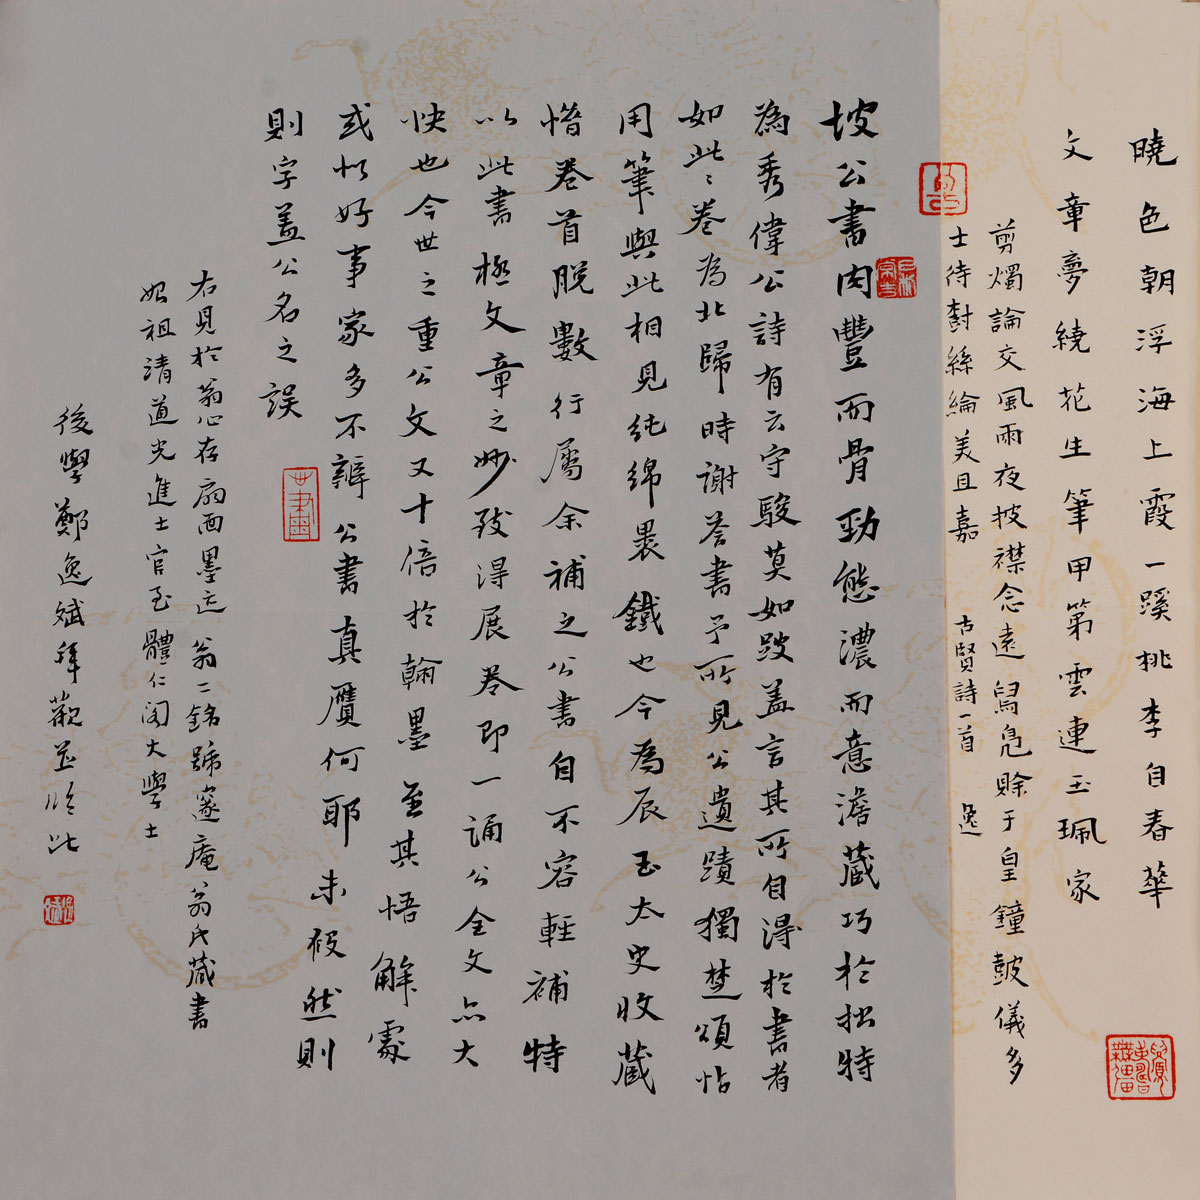 曉色朝浮海上霞一蹊桃李自春華
文章夢繞花生筆甲第雲連玉珮家
剪燭論交風雨夜披襟念遠舄鳧賒于皇鐘鼓儀多
士待對絲綸美且嘉
古賢詩一首 逸
坡公書肉豐而骨勁態濃而意澹藏巧於拙特
為秀偉公詩有云守駿莫如跛蓋言其所自得於書者
如此〻卷為北歸時謝荅書予所見公遺蹟獨楚頌帖
用筆與此相見純綿裹鐵也今為辰玉太史收藏
惜卷首脫數行屬余補之公書自不容輕補特
以此書極文章之妙致得展卷即一誦公全文亦大
快也今世之重公文又十倍於翰墨至其悟解處
或恨好事家多不辨公書真贋何耶未假然則
則字蓋公名之誤
右見於翁心存扇面墨迹翁二銘號邃庵翁氏藏書
始祖清道光進士官至體仁閣大學士
後學鄭逸斌拜觀並臨此